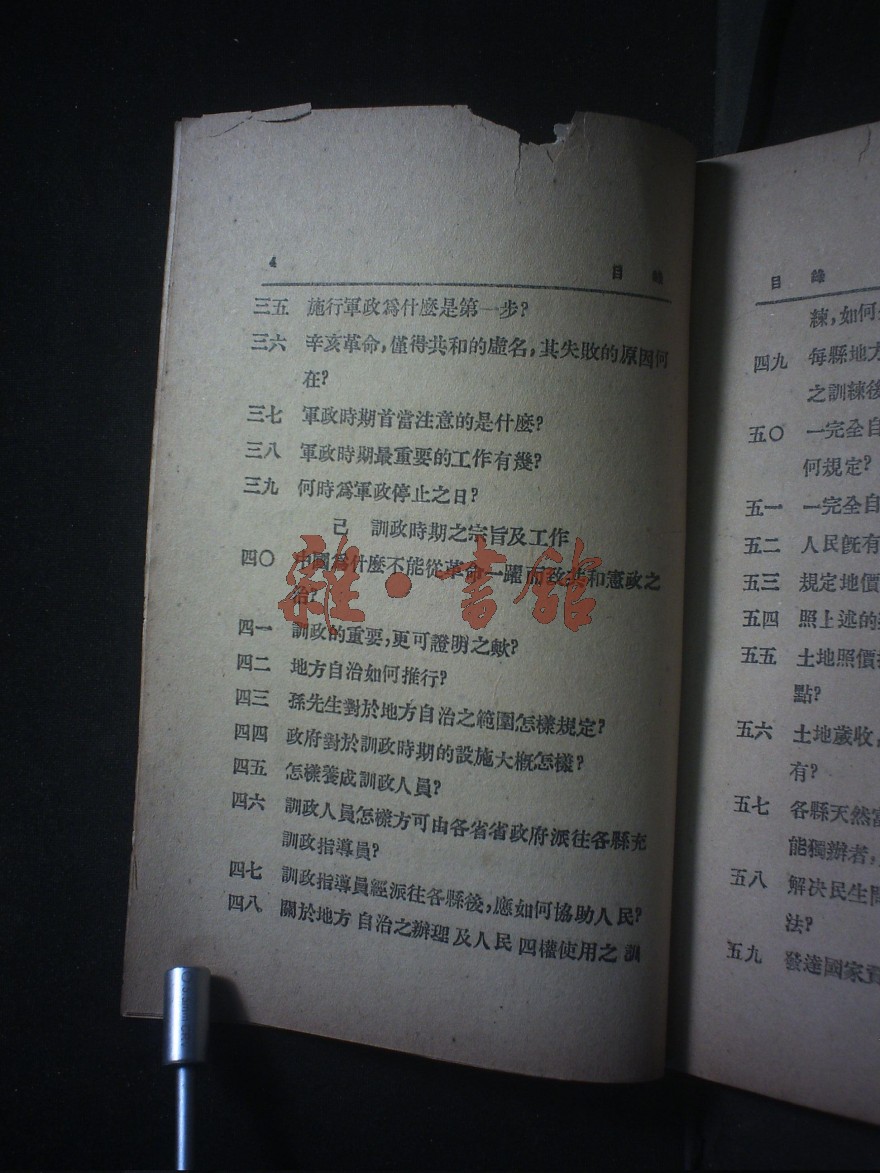 4 目錄
三五 施行軍政爲什麼是第一步?
三六 辛亥革命,僅得共和的虛名,其失敗的原因何
在?
三七 軍政時期首當注意的是什麼?
三八 軍政時期最重要的工作有幾?
三九 何時爲軍政停止之日?
己 訓政時期之宗旨及工作
四〇 中國爲什麼不能從革命一躍而致共和憲政之
治?
四一 訓政的重要,更可證明之歟?
四二 地方自治如何推行?
四三 孫先生對於地方自治之範圍怎樣規定?
四四 政府對於訓政時期的設施大概怎樣?
四五 怎樣養成訓政人員?
四六 訓政人員怎樣方可由各省省政府派往各縣充
訓政指導員?
四七 訓政指導員經派往各縣後,應如何協助人民?
四八 關於地方自治之辦理及人民四權使用之訓
雜·書館
目錄
練,如何
四九 每縣地方
之訓練後
五〇 一完全自
何規定?
五一 一完全自
五二 人民旣有
五三 規定地價
五四 照上述的
五五 土地照價
點?
五六 土地歲收,
有?
五七 各縣天然富
能獨辦者,
五八 解決民生問
法?
五九 發達國家資